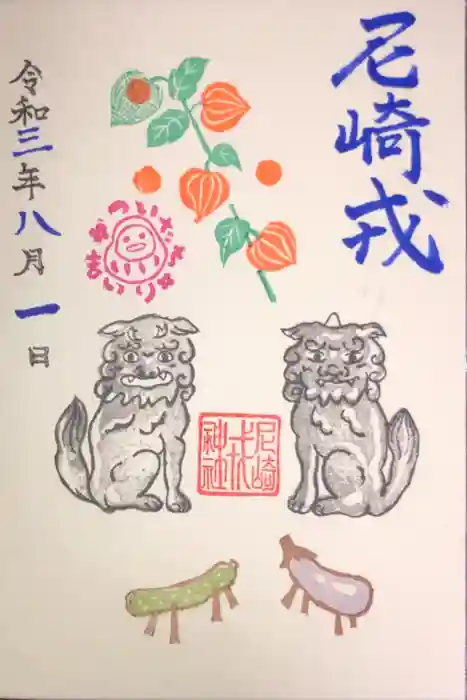 尼崎戎
令和三年八月一日
ついたち
まいり
尼崎
戎
神社